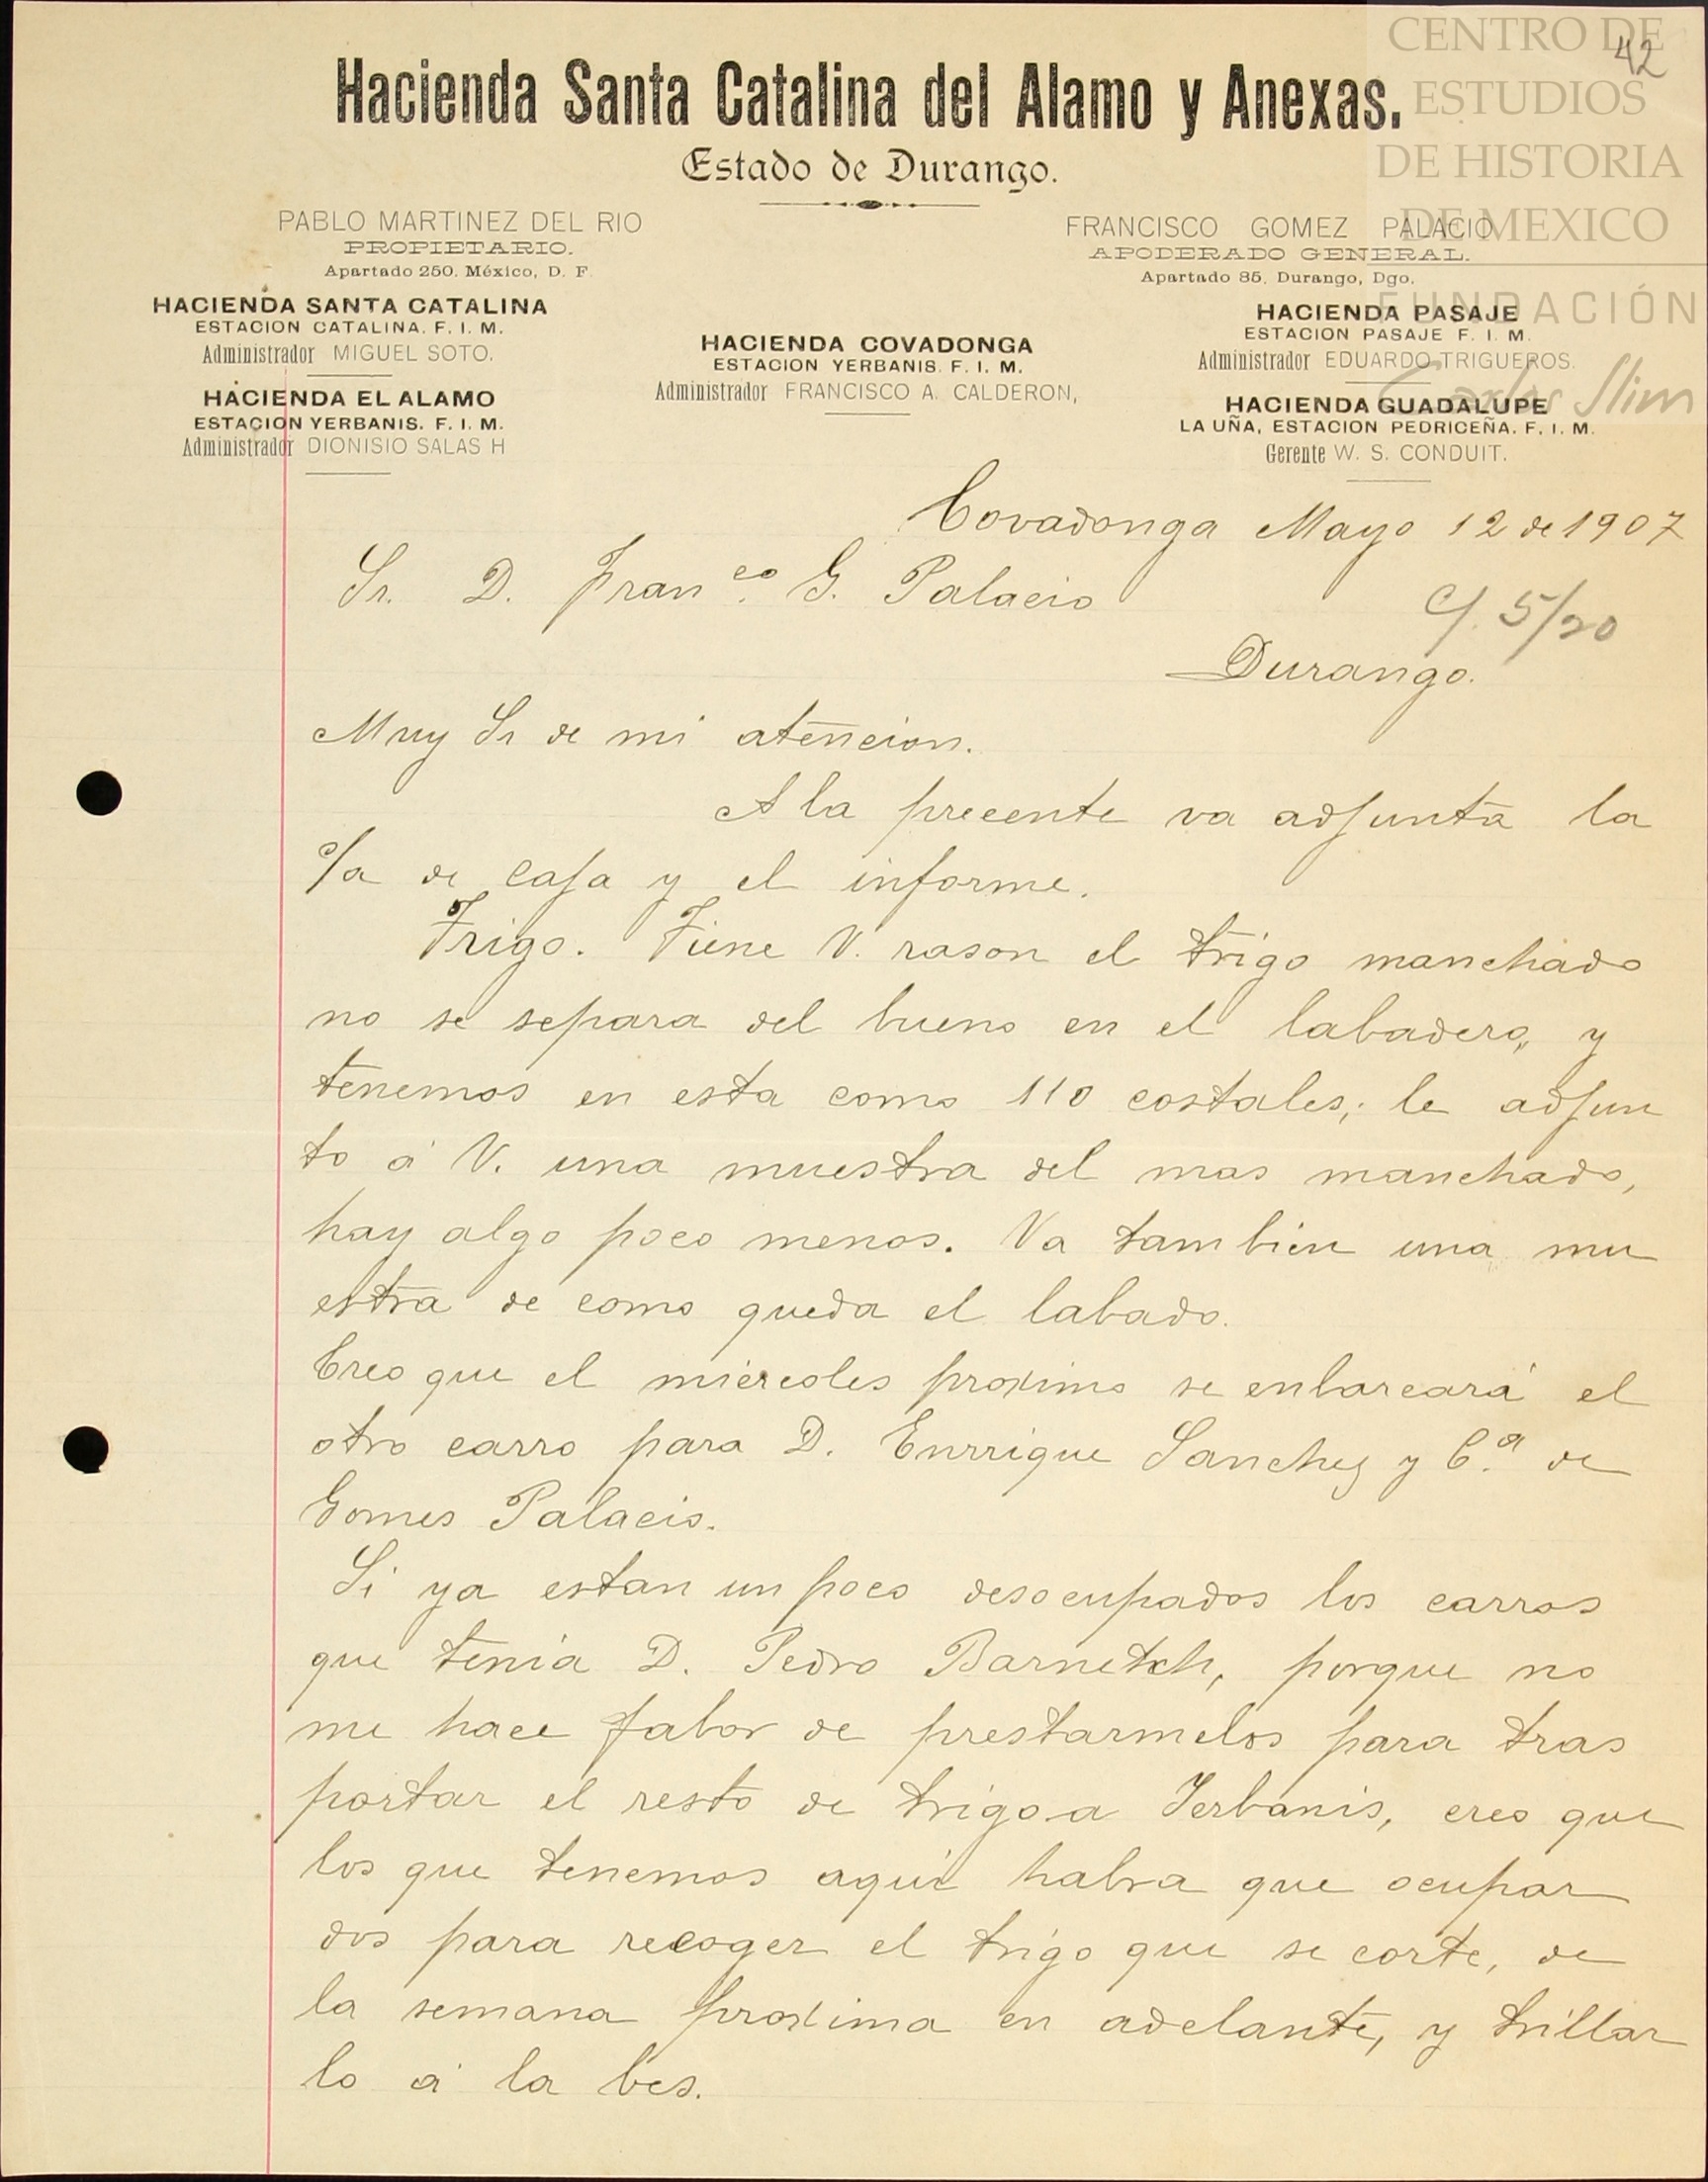 CENTRO DE
ESTUDIOS
DE HISTORIA
DE MEXICO
FUNDACIÓN
Carlos Slim
42
Hacienda Santa Catalina del Alamo y Anexas.
Estado de Durango.
PABLO MARTINEZ DEL RIO
PROPIETARIO.
Apartado 250. México, D. F.
FRANCISCO GOMEZ PALACIO
APODERADO GENERAL.
Apartado 85, Durango, Dgo.
HACIENDA SANTA CATALINA
ESTACION CATALINA. F. I. M.
Administrador MIGUEL SOTO.
HACIENDA EL ALAMO
ESTACION YERBANIS. F. I. M.
Administrador DIONISIO SALAS H
HACIENDA COVADONGA
ESTACION YERBANIS. F. I. M.
Administrador FRANCISCO A. CALDERON,
HACIENDA PASAJE
ESTACION PASAJE F. I. M.
Administrador EDUARDO TRIGUEROS.
HACIENDA GUADALUPE
LA UÑA, ESTACION PEDRICEÑA. F. I. M.
Gerente W. S. CONDUIT.
Covadonga Mayo 12 de 1907
Sr. D. Franco. G. Palacio
C/. 5/20
Durango.
Muy Sr de mi atencion.
A la precente va adjunta la
c/a de caja y el informe.
Trigo. Tiene V. rason el trigo manchado
no se separa del bueno en el labadero, y
tenemos en esta como 110 costales; le adjun
to á V. una muestra del mas manchado,
hay algo poco menos. Va tambien una mu
estra de como queda el labado.
Creo que el miercoles proximo se enbarcará el
otro carro para D. Enrrique Sanchez y Ca. de
Gomes Palacio.
Si ya estan un poco desocupados los carros
que tenia D. Pedro Barnetch, porque no
me hace fabor de prestarmelos para tras
portar el resto de trigo a Yerbanis, creo que
los que tenemos aqui habra que ocupar
dos para recoger el trigo que se corte, de
la semana proxima en adelante, y trillar
lo á la bes.